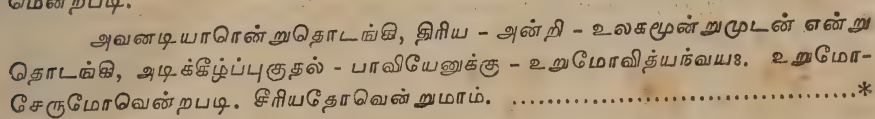 மென்றபடி.
அவனடியாரென்றுதொடங்கி, திரிய - அன்றி - உலகமூன்றுமுடன் என்று
தொடங்கி, அடிக்கீழ்ப்புகுதல் - பாவியேனுக்கு - உறுமோவித்யந்வய:. உறுமோ-
சேருமோவென்றபடி. சீரியதோவென்றுமாம். ......................................*